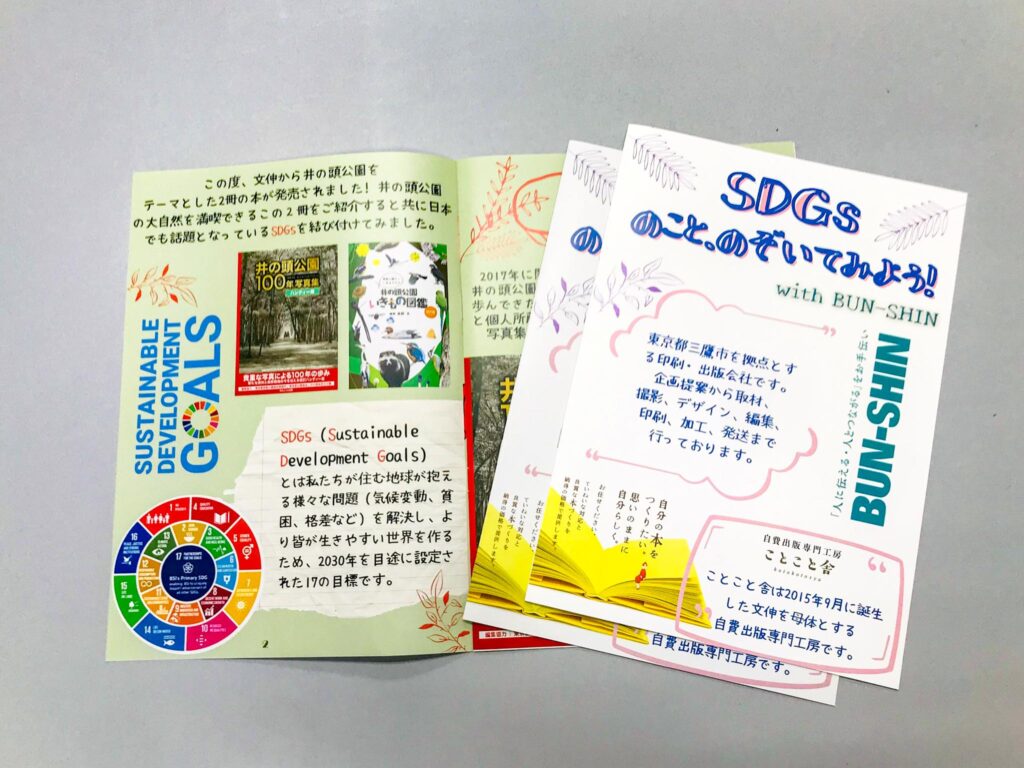 この度、文伸から井の頭公園を
テーマとした2冊の本が発売されました! 井の頭公園
の大自然を満喫できるこの2冊をご紹介すると共に日本
でも話題となっているSDGsを結び付けてみました。
井の頭公園
100年写真集
ハンディー版
貴重な写真による100年の歩み
井の頭公園
いきもの図鑑
SUSTAINABLE
DEVELOPMENT
GOALS
SDGs (Sustainable
Development Goals)
とは私たちが住む地球が抱え
る様々な問題(気候変動、貧
困、格差など)を解決し、よ
り皆が生きやすい世界を作る
ため、2030年を目途に設定さ
れた17の目標です。
17 PARTNERSHIPS
FOR THE GOALS
BSI's Primary SDG
2
2017年に
井の頭公園
歩んできた
と個人所
写真集
編集協力
SDGs
のこと。のぞいてみよう!
with BUN-SHIN
東京都三鷹市を拠点とす
る印刷・出版会社です。
企画提案から取材、
撮影、デザイン、編集、
印刷、加工、発送まで
行っております。
「人に伝える・人とつながる」をお手伝い
BUN-SHIN
自分の本を
つくりたい。
思いのままに
自分らしく。
お任せください。
ていねいな対応と
良質な本づくりを
納得の価格で提供します。
自費出版専門工房
ことこと舎
kotokotosya
ことこと舎は2015年9月に誕生
した文伸を母体とする
自費出版専門工房です。
自費出版専門工房です。